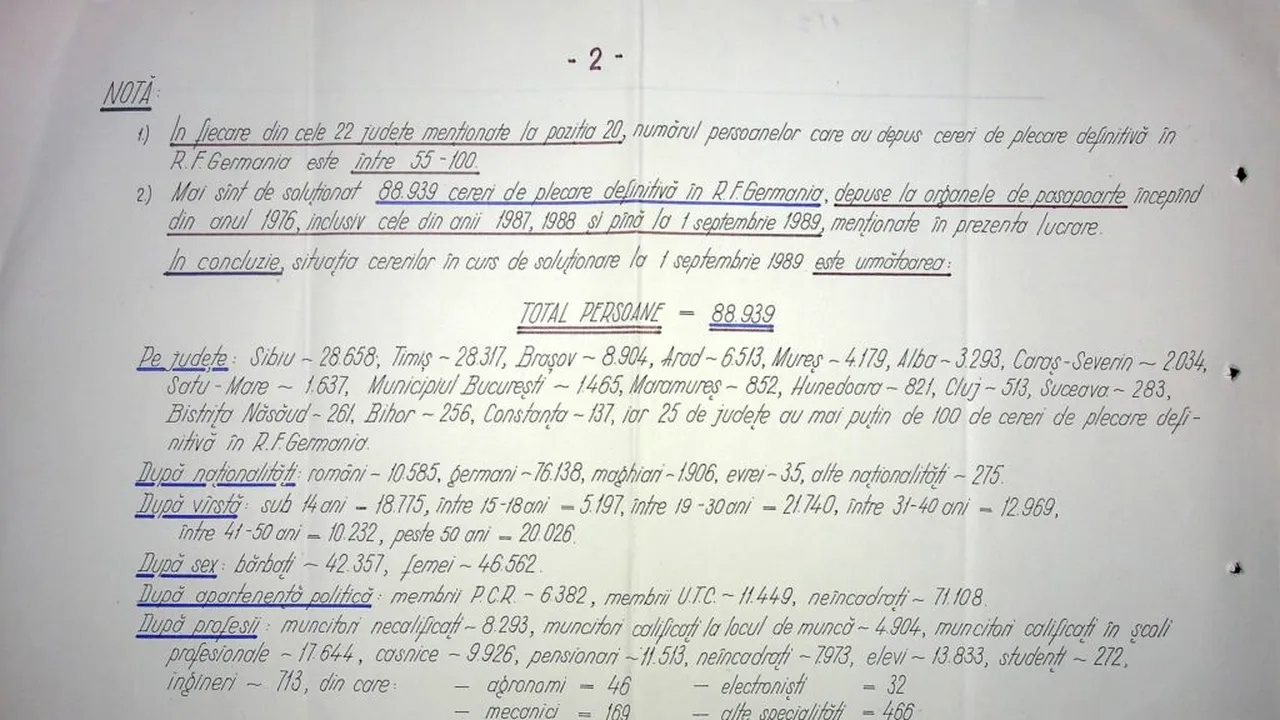 - 2 -
NOTĂ:
1.) În fiecare din cele 22 județe menționate la poziția 20, numărul persoanelor care au depus cereri de plecare definitivă în
R.F.Germania este între 55-100.
2.) Mai sînt de soluționat 88.939 cereri de plecare definitivă în R.F.Germania, depuse la organele de pașapoarte începînd
din anul 1976, inclusiv cele din anii 1987, 1988 și pînă la 1 septembrie 1989, menționate în prezenta lucrare.
În concluzie, situația cererilor în curs de soluționare la 1 septembrie 1989 este următoarea:
TOTAL PERSOANE = 88.939
Pe județe: Sibiu ~ 28.658, Timiș ~ 28.317, Brașov ~ 8.904, Arad ~ 6.513, Mureș ~ 4.179, Alba ~ 3.293, Caraș-Severin ~ 2.034,
Satu-Mare ~ 1.637, Municipiul București ~ 1.465, Maramureș ~ 852, Hunedoara ~ 821, Cluj ~ 513, Suceava ~ 283,
Bistrița Năsăud ~ 261, Bihor ~ 256, Constanța ~ 137, iar 25 de județe au mai puțin de 100 de cereri de plecare defi-
nitivă în R.F.Germania.
După naționalități: români ~ 10.585, germani ~ 76.138, maghiari ~ 1.906, evrei ~ 35, alte naționalități ~ 275.
După vîrstă: sub 14 ani = 18.775, între 15-18 ani = 5.197, între 19-30 ani = 21.740, între 31-40 ani = 12.969,
între 41-50 ani = 10.232, peste 50 ani = 20.026.
După sex: bărbați ~ 42.357, femei ~ 46.562.
După apartenență politică: membrii P.C.R. ~ 6.382, membrii U.T.C. ~ 11.449, neîncadrați ~ 71.108.
După profesii: muncitori necalificați ~ 8.293, muncitori calificați la locul de muncă ~ 4.904, muncitori calificați în școli
profesionale ~ 17.644, casnice ~ 9.926, pensionari ~ 11.513, neîncadrați ~ 7.973, elevi ~ 13.833, studenți ~ 272,
ingineri ~ 713, din care: — agronomi = 46 — electroniști = 32
— mecanici = 169 — alte specialități = 466